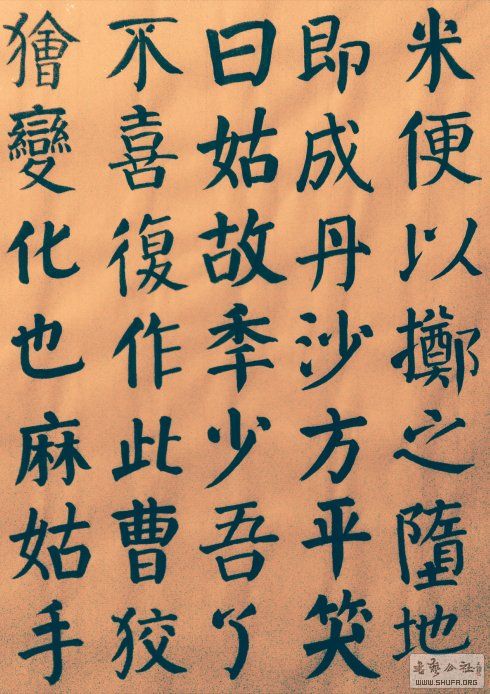 米便以擲之墮地
即成丹沙方平笑
曰姑故秊少吾了
不喜復作此曹狡
獪變化也麻姑手
書藝公社
WWW.SHUFA.ORG